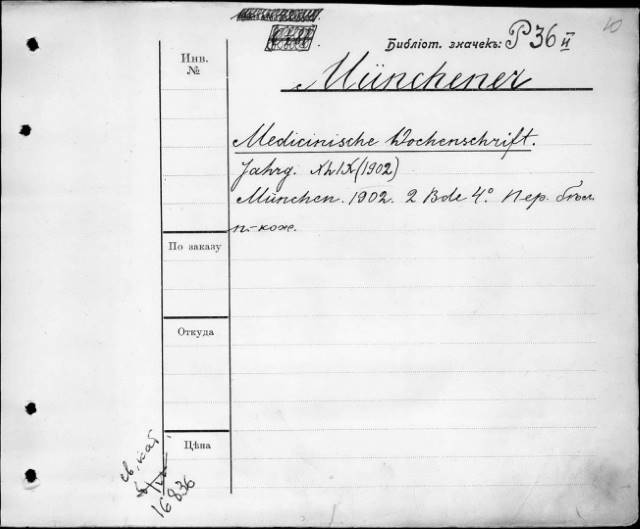 10
Библіот. значекъ: P 36 II
Münchener
Инв.
№
Medicinische Wochenschrift.
Jahrg. XLIX (1902)
München. 1902. 2 Bde 4° Пер.
п.-кож.
По заказу
Откуда
Цѣна
св. кат
16836